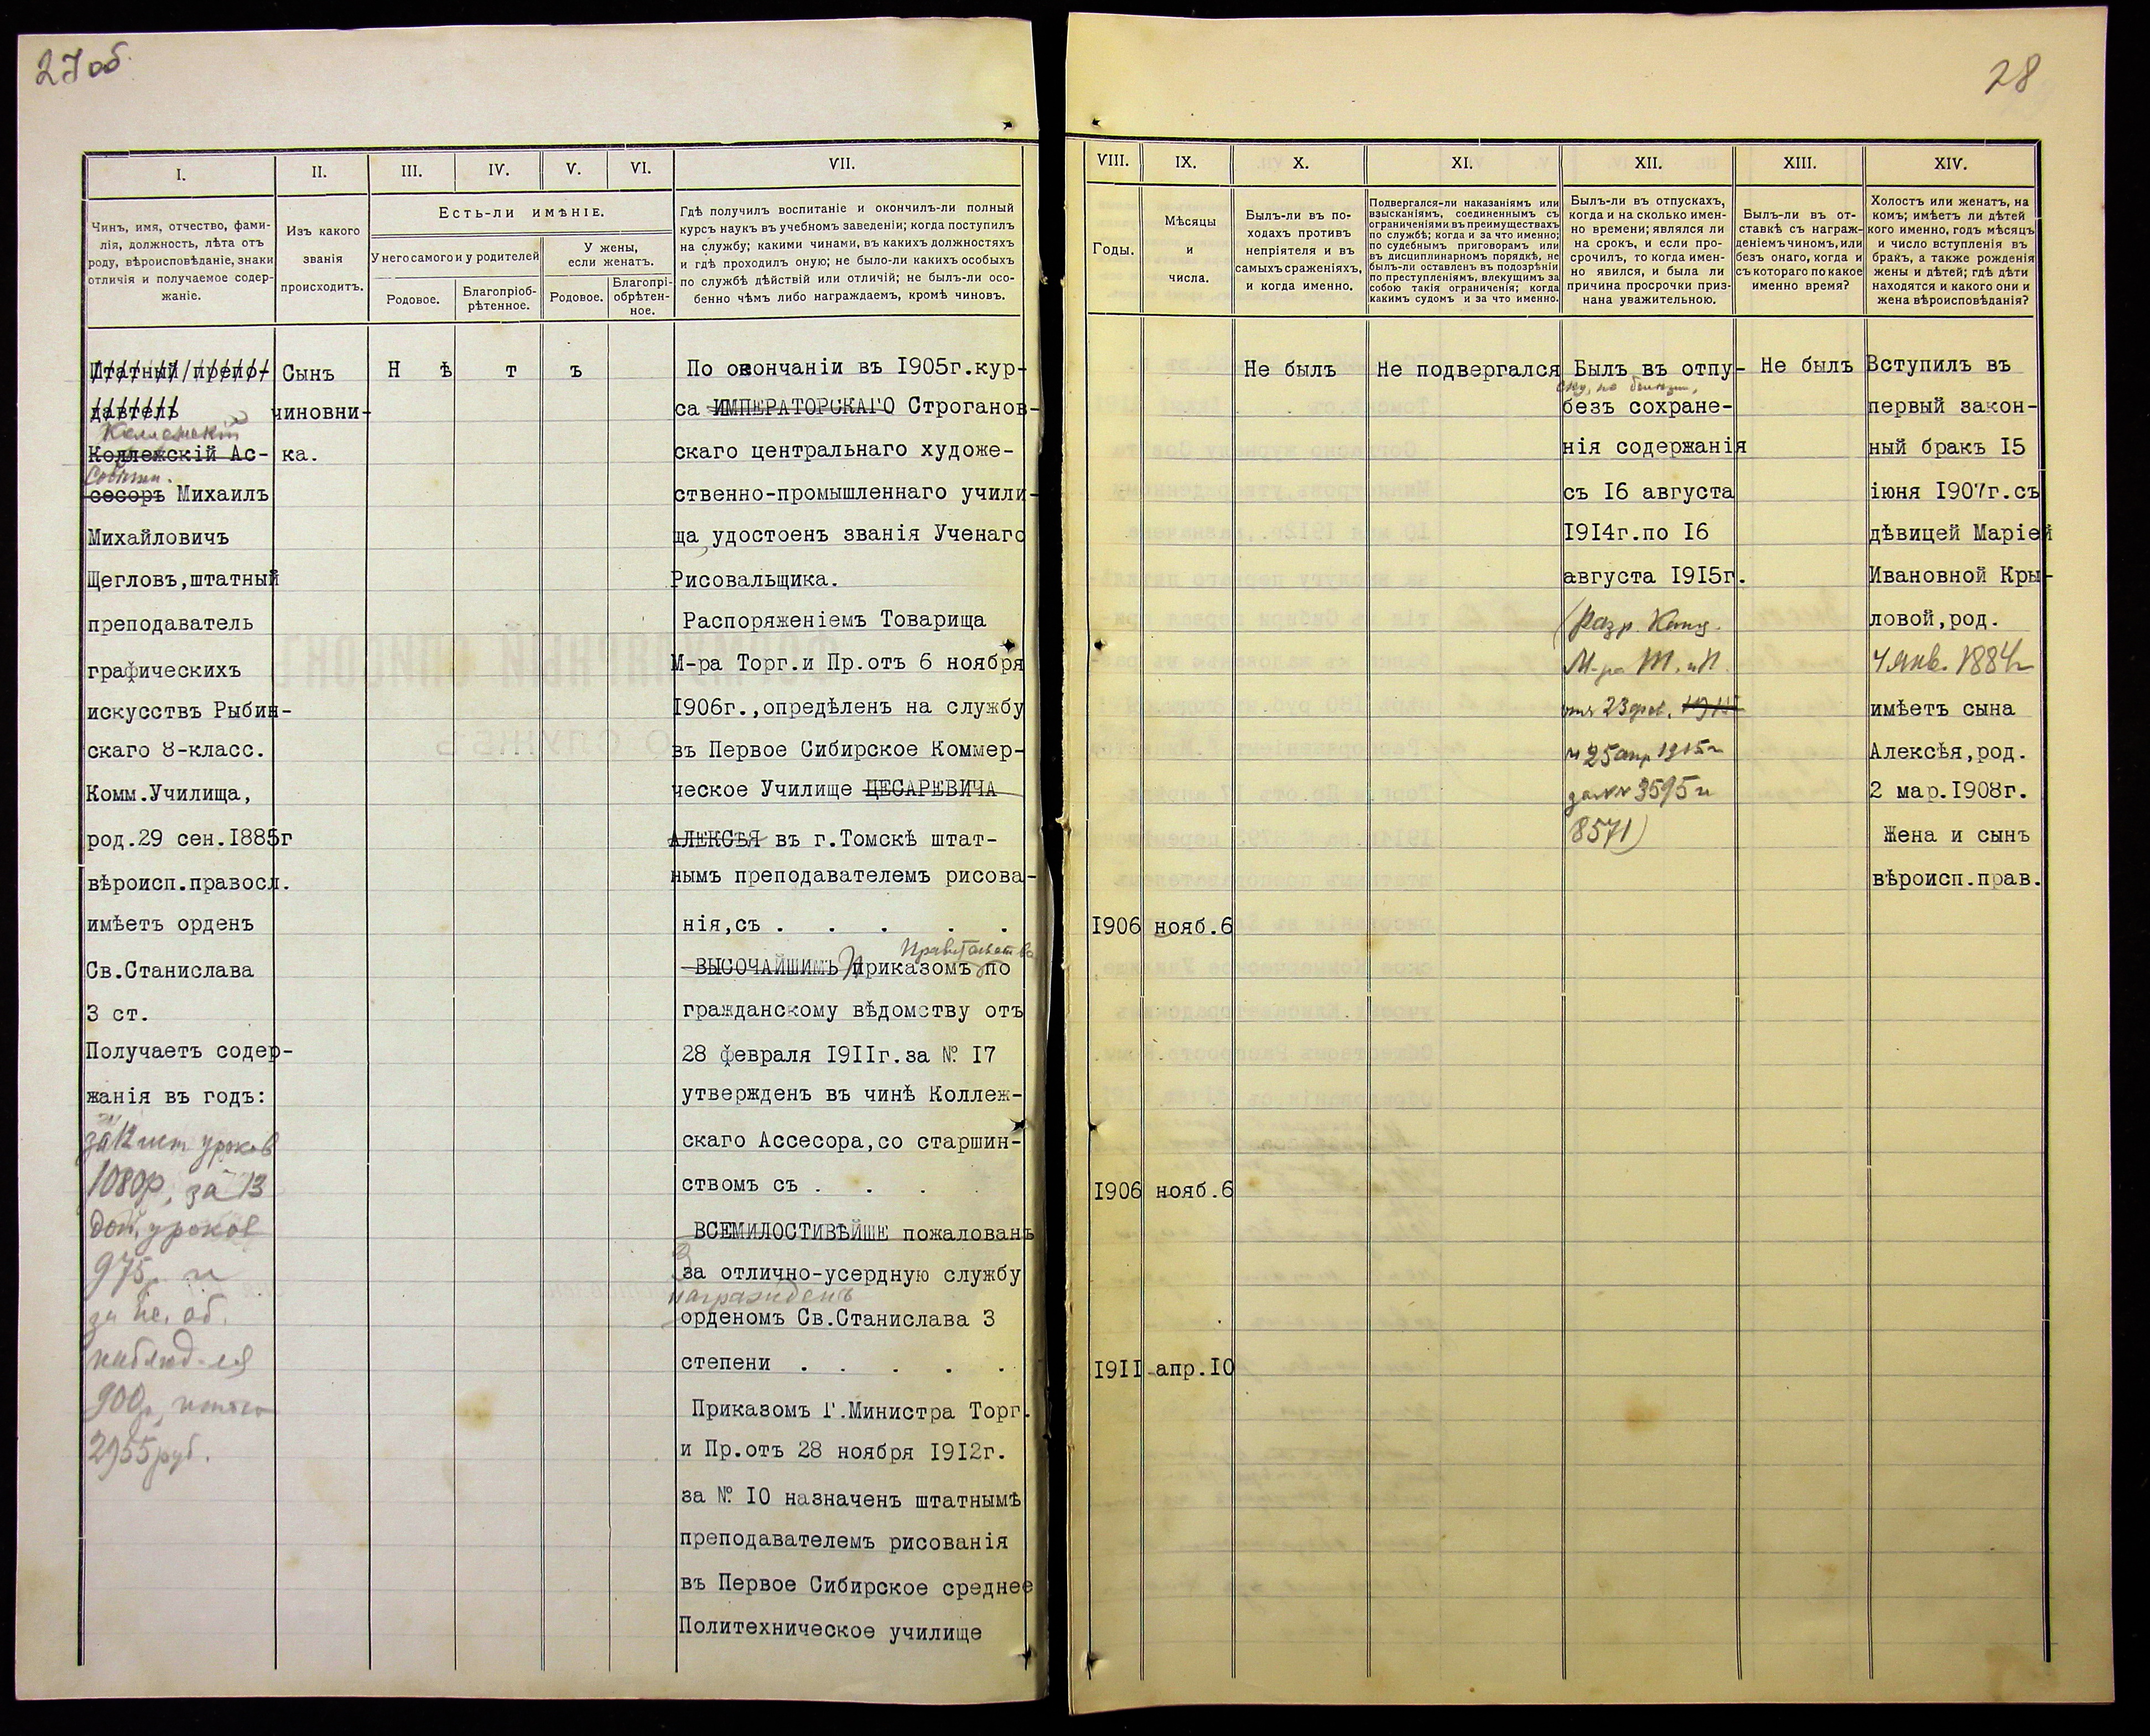 27 об.
I.
II.
III.
IV.
V.
VI.
VII.
Чинъ, имя, отчество, фами-
лія, должность, лѣта отъ
роду, вѣроисповѣданіе, знаки
отличія и получаемое содер-
жаніе.
Изъ какого
званія
происходитъ.
Есть-ли имѣніе.
У него самого и у родителей
У жены,
если женатъ.
Родовое.
Благопріоб-
рѣтенное.
Родовое.
Благопрі-
обрѣтен-
ное.
Гдѣ получилъ воспитаніе и окончилъ-ли полный
курсъ наукъ въ учебномъ заведеніи; когда поступилъ
на службу; какими чинами, въ какихъ должностяхъ
и гдѣ проходилъ оную; не было-ли какихъ особыхъ
по службѣ дѣйствій или отличій; не былъ-ли осо-
бенно чѣмъ либо награждаемъ, кромѣ чиновъ.
Штатный препо-
даватель
Коллежскій
Коллежскій Ас-
Совѣтн.
сесоръ Михаилъ
Михайловичъ
Щегловъ, штатный
преподаватель
графическихъ
искусствъ Рыбин-
скаго 8-класс.
Комм.Училища,
род.29 сен.1885г
вѣроисп.правосл.
имѣетъ орденъ
Св.Станислава
3 ст.
Получаетъ содер-
жанія въ годъ:
за 12 шт уроков
1080р, за 13
доп. уроков
975р и
за
наблюд-ія
900р, итого
2955 руб.
Сынъ
чиновни-
ка.
Н ѣ т ъ
По окончаніи въ 1905г.кур-
са ИМПЕРАТОРСКАГО Строганов-
скаго центральнаго художе-
ственно-промышленнаго учили-
ща удостоенъ званія Ученаго
Рисовальщика.
Распоряженіемъ Товарища
М-ра Торг.и Пр.отъ 6 ноября
1906г.,опредѣленъ на службу
въ Первое Сибирское Коммер-
ческое Училище ЦЕСАРЕВИЧА
АЛЕКСѢЯ въ г.Томскѣ штат-
нымъ преподавателемъ рисова-
нія,съ . . . . .
Правительства
ВЫСОЧАЙШИМЪ Приказомъ по
гражданскому вѣдомству отъ
28 февраля 1911г.за № 17
утвержденъ въ чинѣ Коллеж-
скаго Ассесора,со старшин-
ствомъ съ . . . .
ВСЕМИЛОСТИВѢЙШЕ пожалованъ
За отлично-усердную службу
награжденъ
орденомъ Св.Станислава 3
степени . . . . .
Приказомъ Г.Министра Торг.
и Пр.отъ 28 ноября 1912г.
за № 10 назначенъ штатнымъ
преподавателемъ рисованія
въ Первое Сибирское среднее
Политехническое училище
28
VIII.
IX.
X.
XI.
XII.
XIII.
XIV.
Годы.
Мѣсяцы
и
числа.
Былъ-ли въ по-
ходахъ противъ
непріятеля и въ
самыхъ сраженіяхъ,
и когда именно.
Подвергался-ли наказаніямъ или
взысканіямъ, соединеннымъ съ
ограниченіями въ преимуществахъ
по службѣ; когда и за что именно;
по судебнымъ приговорамъ или
въ дисциплинарномъ порядкѣ, не
былъ-ли оставленъ въ подозрѣніи
по преступленіямъ, влекущимъ за
собою такія ограниченія; когда
какимъ судомъ и за что именно.
Былъ-ли въ отпускахъ,
когда и на сколько имен-
но времени; являлся ли
на срокъ, и если про-
срочилъ, то когда имен-
но явился, и была ли
причина просрочки приз-
нана уважительною.
Былъ-ли въ от-
ставкѣ съ награж-
деніемъ чиномъ, или
безъ онаго, когда и
съ котораго по какое
именно время?
Холостъ или женатъ, на
комъ; имѣетъ ли дѣтей
кого именно, годъ мѣсяцъ
и число вступленія въ
бракъ, а также рожденія
жены и дѣтей; гдѣ дѣти
находятся и какого они и
жена вѣроисповѣданія?
1906 нояб.6
1906 нояб.6
1911 апр.10
Не былъ
Не подвергался
Былъ въ отпу-
ску, по болѣзни,
безъ сохране-
нія содержанія
съ 16 августа
1914г.по 16
августа 1915г.
(Разр. Канц.
М-ра Т. и П.
отъ 23 фев. 1915
и 25 апр 1915г
за №№ 3595 и
8571)
Не былъ
Вступилъ въ
первый закон-
ный бракъ 15
іюня 1907г.съ
дѣвицей Маріей
Ивановной Кры-
ловой,род.
4 янв. 1884г
имѣетъ сына
Алексѣя,род.
2 мар.1908г.
Жена и сынъ
вѣроисп.прав.